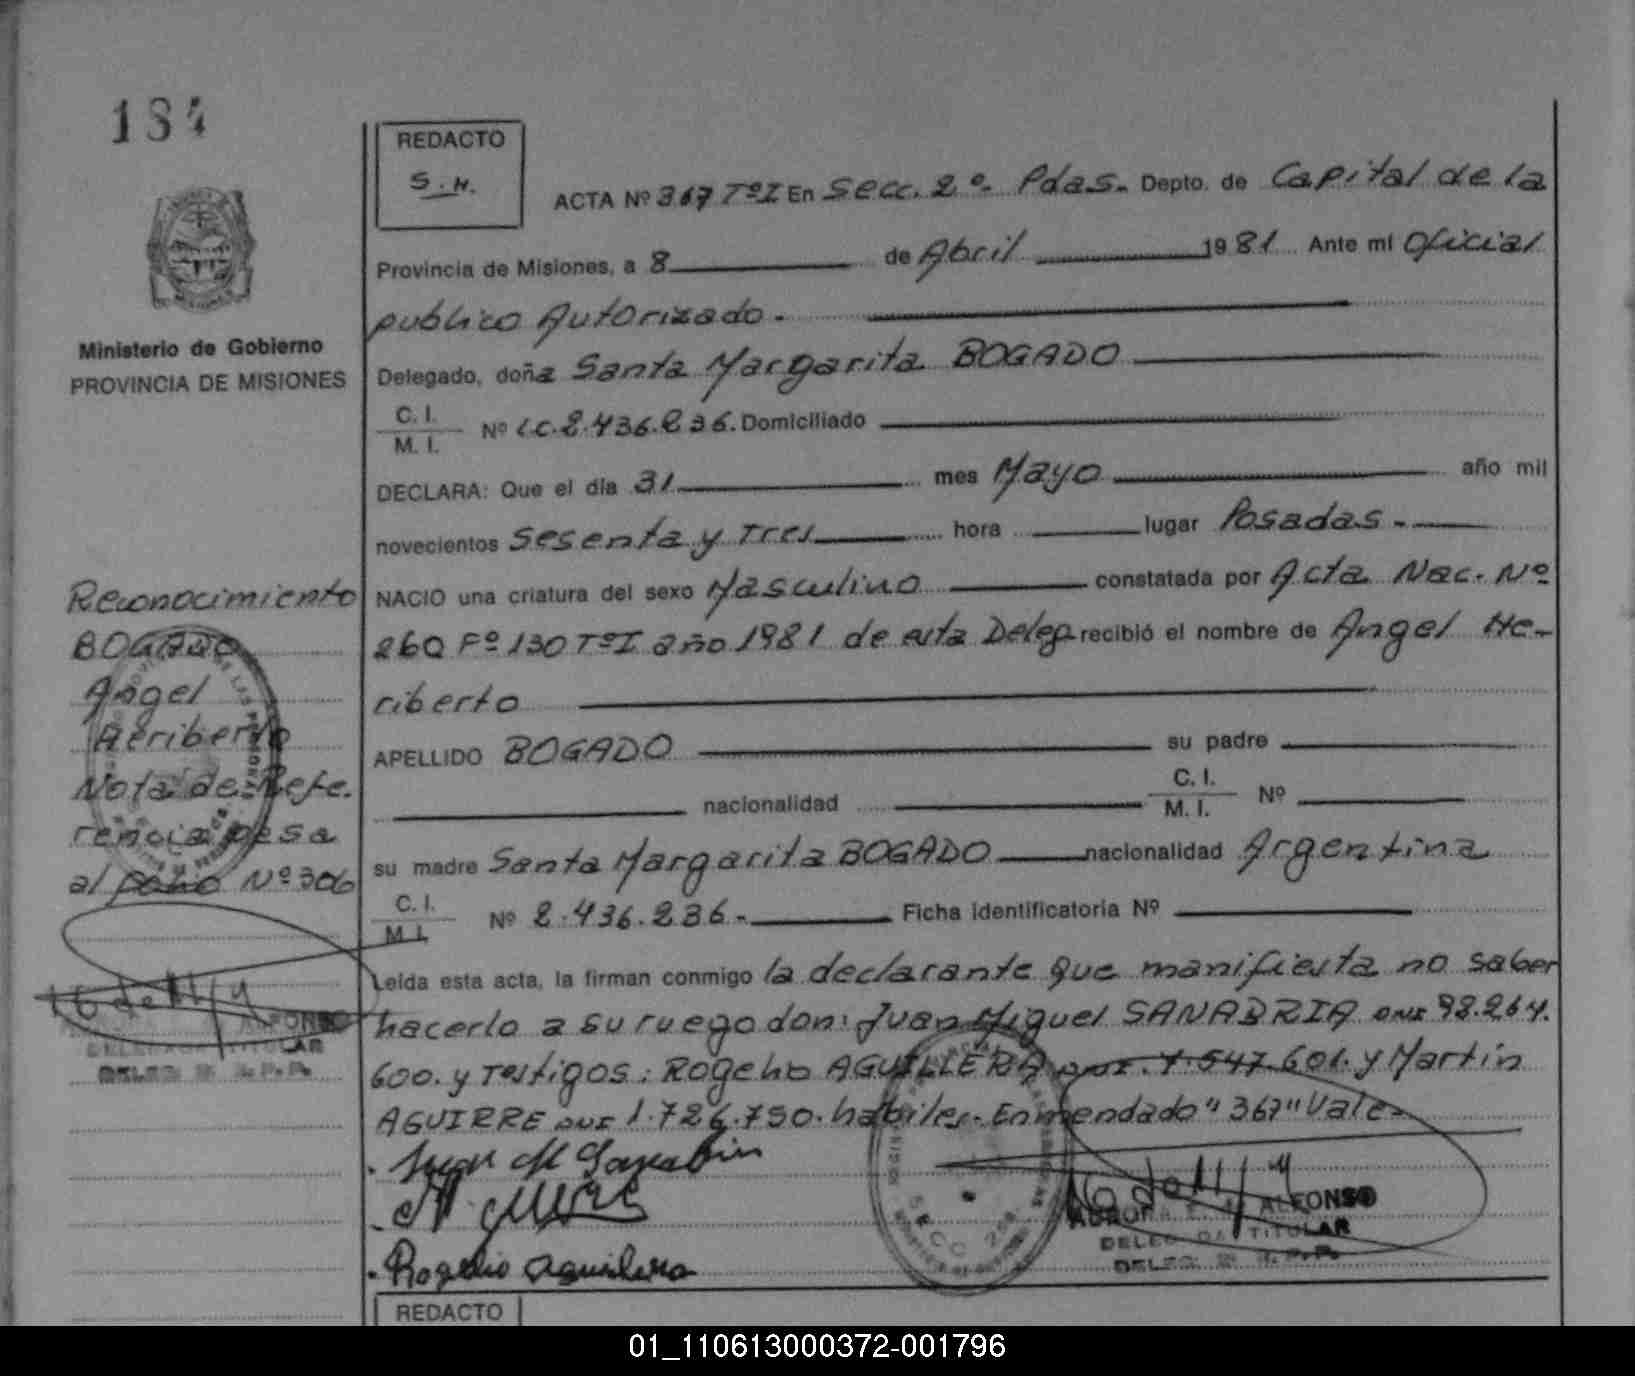 184
REDACTO
S.H.
ACTA Nº 367 TºI En Secc. 2º- Pdas.- Depto. de Capital de la
Provincia de Misiones, a 8 de Abril 1981 Ante mi Oficial
publico Autorizado.-
Ministerio de Gobierno
PROVINCIA DE MISIONES
Delegado, doña Santa Margarita BOGADO
C. I.
M. I.
Nº LC.2.436.236. Domiciliado
DECLARA: Que el día 31 mes Mayo año mil
novecientos Sesenta y Tres hora lugar Posadas.-
NACIO una criatura del sexo Masculino constatada por Acta Nac. Nº
260 Fº 130 TºI año 1981 de esta Deleg. recibió el nombre de Angel He-
riberto
APELLIDO BOGADO su padre
nacionalidad C. I.
M. I. Nº
su madre Santa Margarita BOGADO nacionalidad Argentina
C. I.
M. I.
Nº 2.436.236.- Ficha identificatoria Nº
Leída esta acta, la firman conmigo la declarante que manifiesta no saber
hacerlo a su ruego don: Juan Miguel SANABRIA DNI 92.264.
600. y Testigos: Rogelio AGUILERA DNI. 7.547.601. y Martin
AGUIRRE DNI 1.726.790. habiles.- Enmendado "367" Vale-
Reconocimiento
BOGADO
Angel
Heriberto
Nota de Refe.
rencia pasa
al folio Nº 306
ALFONSO
DELEGADA TITULAR
Juan M Sanabria
Rogelio Aguilera
SECC 2da
AURORA E. ALFONSO
DELEGADA TITULAR
REDACTO
01_110613000372-001796